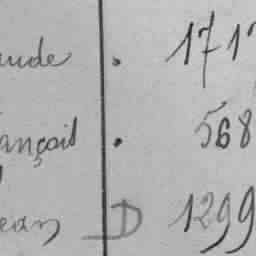 aude . 171
ançois . 568
ean D 1299